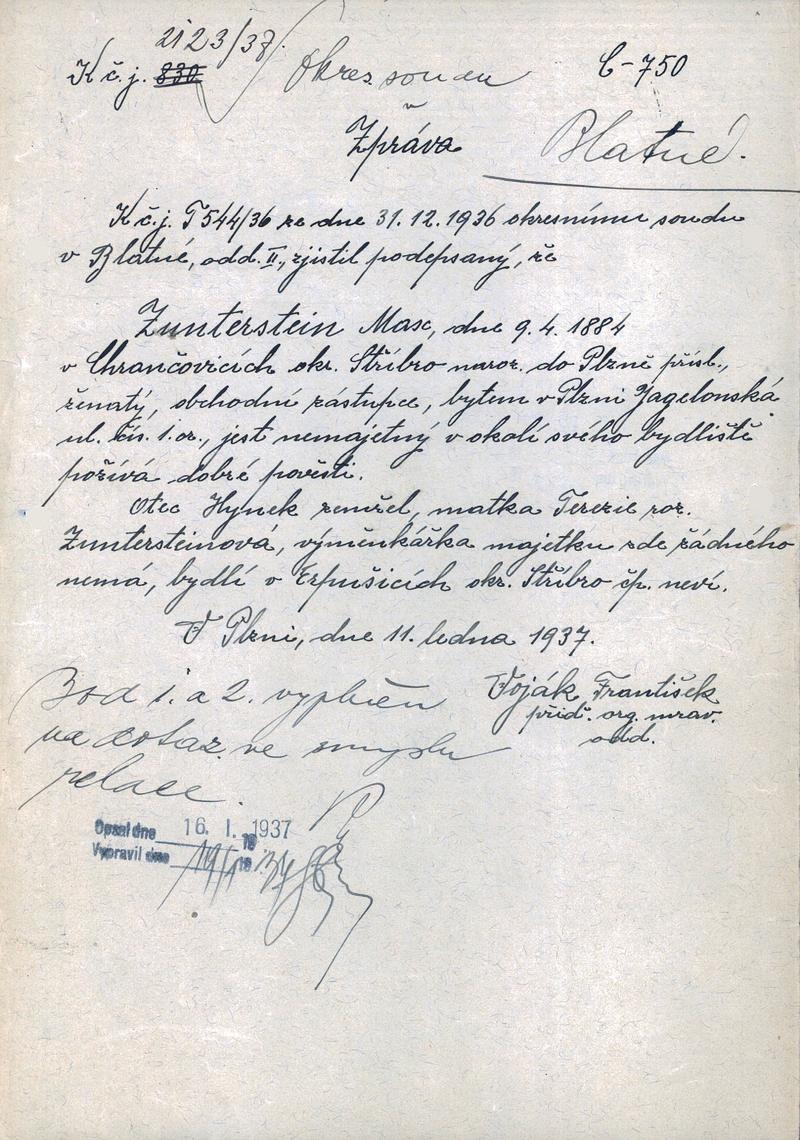 2123/37.
K č.j. 830 Okres. soudu C-750
v
Zpráva Blatné.
K č.j. T 544/36 ze dne 31.12.1936 okresnímu soudu
v Blatné, odd. II., zjistil podepsaný, že
Zunterstein Max, dne 9.4.1884
v Chrančovicích okr. Stříbro naroz. do Plzně přísl.,
ženatý, obchodní zástupce, bytem v Plzni Jagelonská
ul. čís. 1. or., jest nemajetný v okolí svého bydliště
požívá dobré pověsti.
Otec Hynek zemřel, matka Terezie roz.
Zuntersteinová, výměnkářka majetku zde žádného
nemá, bydlí v Erpušicích okr. Stříbro čp. neví.
V Plzni, dne 11. ledna 1937.
Bod 1. a 2. vyplněn
Voják František
přiděl. org. mrav.
odd.
na dotaz. ve smyslu
relace.
Opsal dne 16. I. 1937
19
Vypravil dne 19/1 37
19